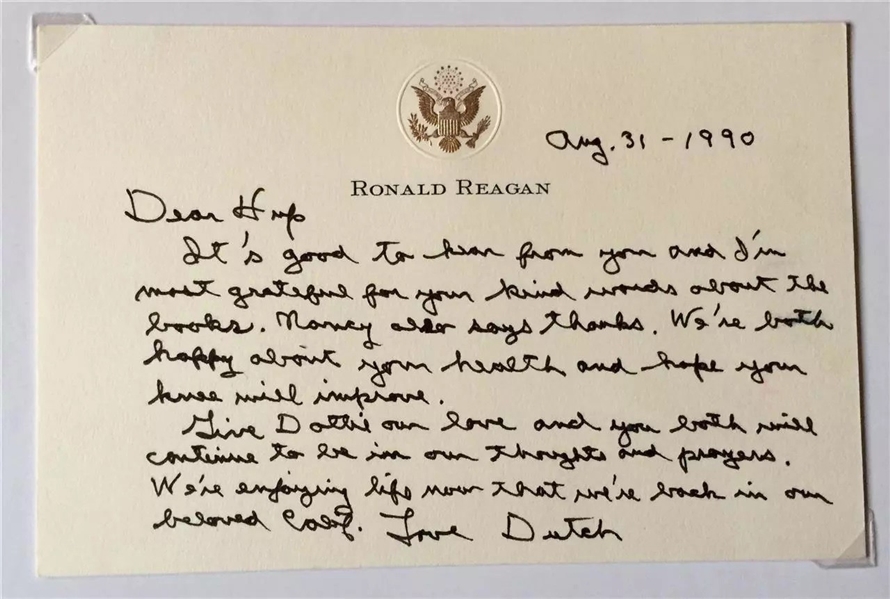 Aug. 31 - 1990
RONALD REAGAN
Dear Hup
It's good to hear from you and I'm
most grateful for your kind words about the
books. Nancy also says thanks. We're both
happy about your health and hope your
knee will improve.
Give Dottie our love and you both will
continue to be in our thoughts and prayers.
We're enjoying life now that we're back in our
beloved Calif. Love Dutch